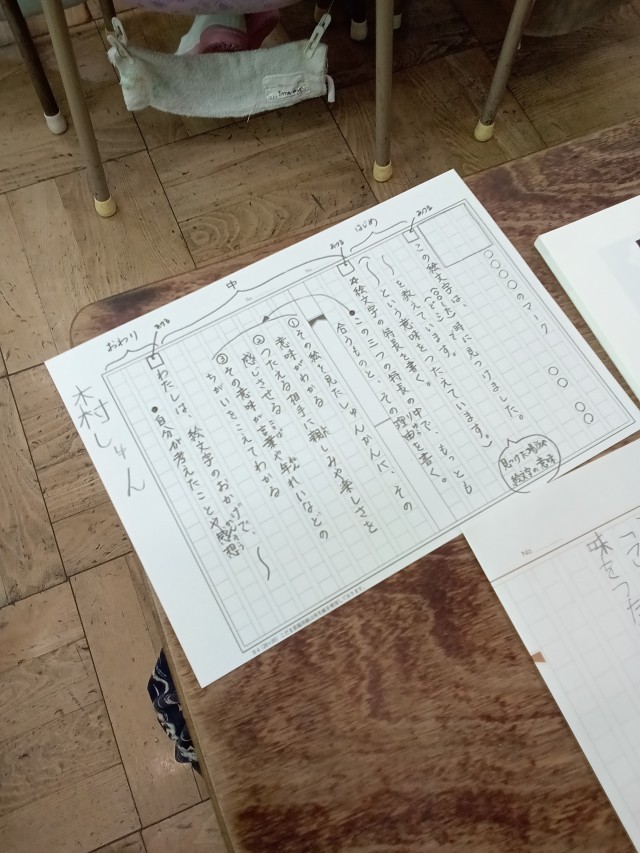 ○○○○のマーク
○○ ○○
この絵文字は、(○○したとき)時に見つけました。
～～を教えています。
～～という意味をつたえています。
見つけた場所
絵文字の意味
絵文字の特長を書く。
●この三つの特長の中で、もっとも
合うものと、その理由を書く。
①その絵を見たしゅんかんに、その
意味がわかる
②つたえる相手に親しみや楽しさを
感じさせる
③その意味が言葉や年れいなどの
ちがいをこえてわかる
わたしは、絵文字のおかげで、～
●自分が考えたことや感想
はじめ
中
おわり
あける
あける
あける
木村しゅん
No.
味をつた